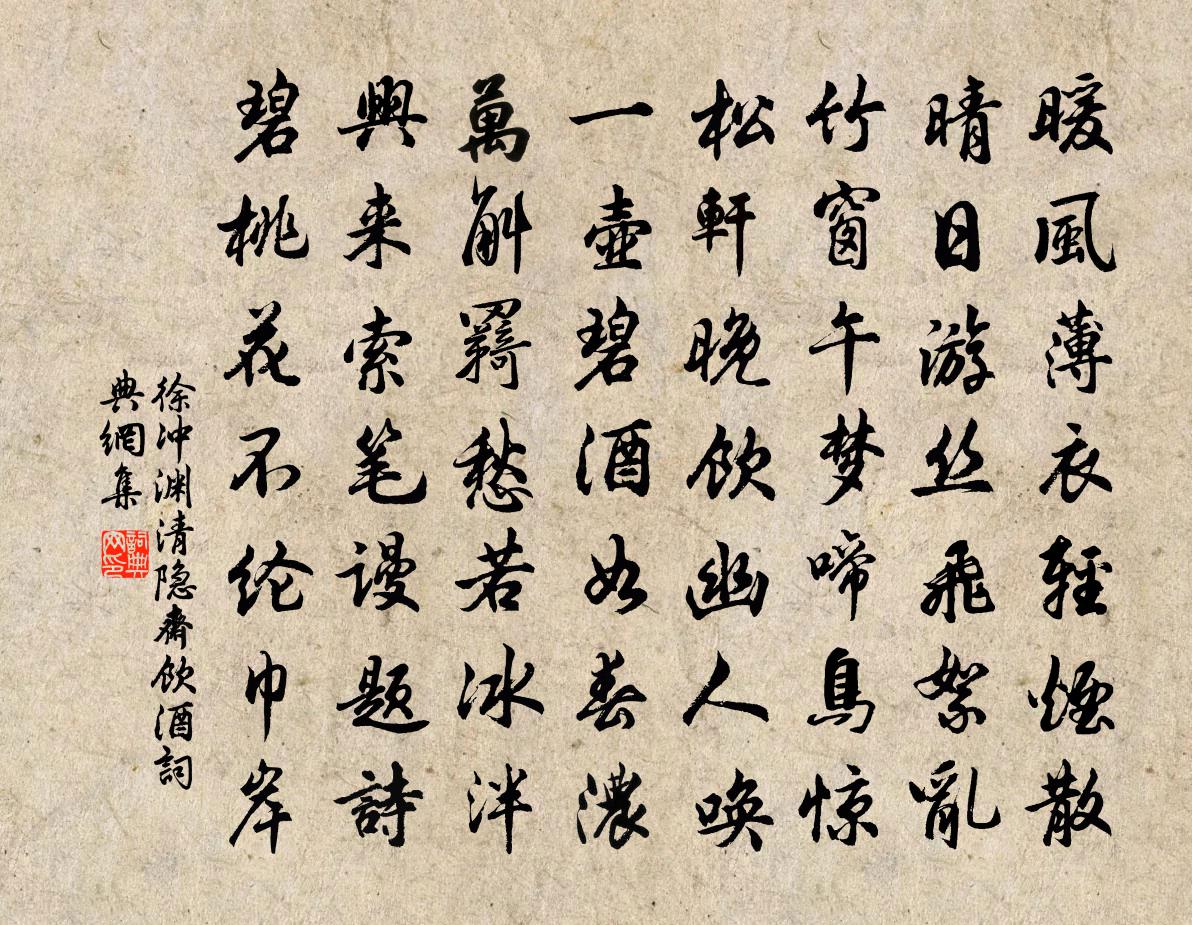 暖風薄衣輕煙散
晴日游丝飛絮亂
竹窗午梦啼鳥惊
松軒晚饮幽人唤
一壺碧酒如春濃
萬斛羇愁若冰泮
興来索笔謾题詩
碧桃花下纶巾岸
徐沖渊清隐齋饮酒詞
典網集
詞典网印